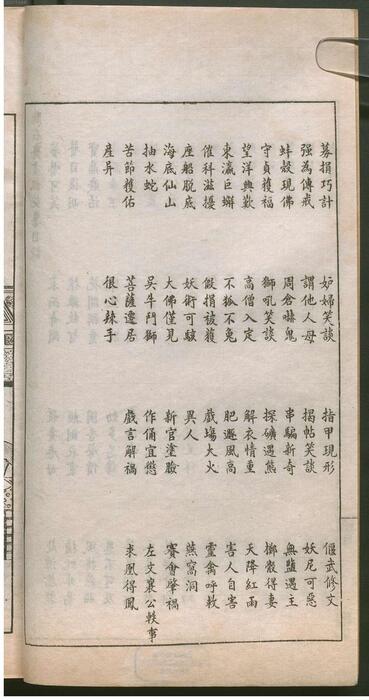 募捐巧計 妒婦笑談 指甲現形 偃武修文
强為傳戒 謂他人母 揭帖笑談 妖尼可惡
蚌殼現佛 周倉嚇鬼 串騙新奇 無鹽遇主
守貞獲福 獅吼笑談 探礦遇熊 擲骰得妻
望洋興歎 高僧入定 解衣情重 天降紅雨
東瀛巨蠏 不狐不兔 肥遯風高 害人自害
催科滋擾 假捐被獲 戲塲大火 靈禽呼救
座船脱底 妖術可駭 異人 燕窩洞
海底仙山 大佛僅見 新官塗臉 賽會肇禍
抽水蛇 吳牛鬥獅 作俑宜懲 左文襄公軼事
苦節獲佑 菩薩遷居 戲言解禍 求凰得鳳
産異 很心辣手